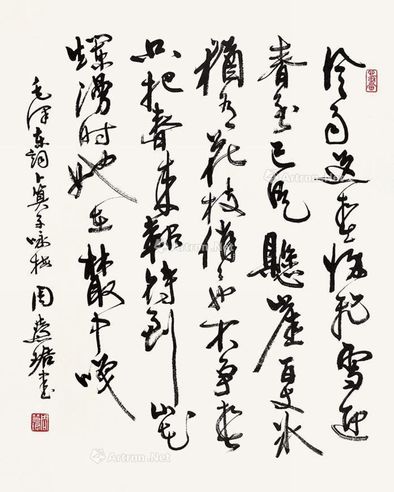 风雨送春归飛雪迎
春到已是懸崖百丈冰
猶有花枝俏々也不争春
只把春来報待到山花
爛漫时她在叢中咲
毛泽东詞卜算子咏梅 周慧珺书
Artron.Net